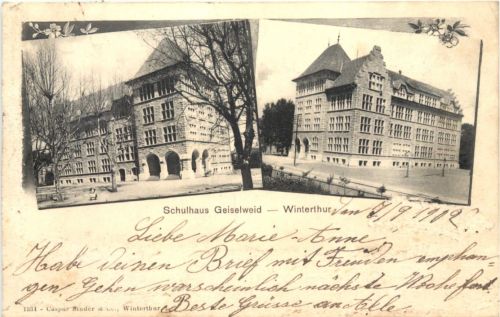 Schulhaus Geiselweid — Winterthur
den 5/9 1902
Liebe Marie Anne
Habe deinen Brief mit Freuden emphan-
gen Gehen warscheinlich nächste Woche fort
Beste Grüsse an Alle.
1351 - Caspar Studer & Co., Winterthur